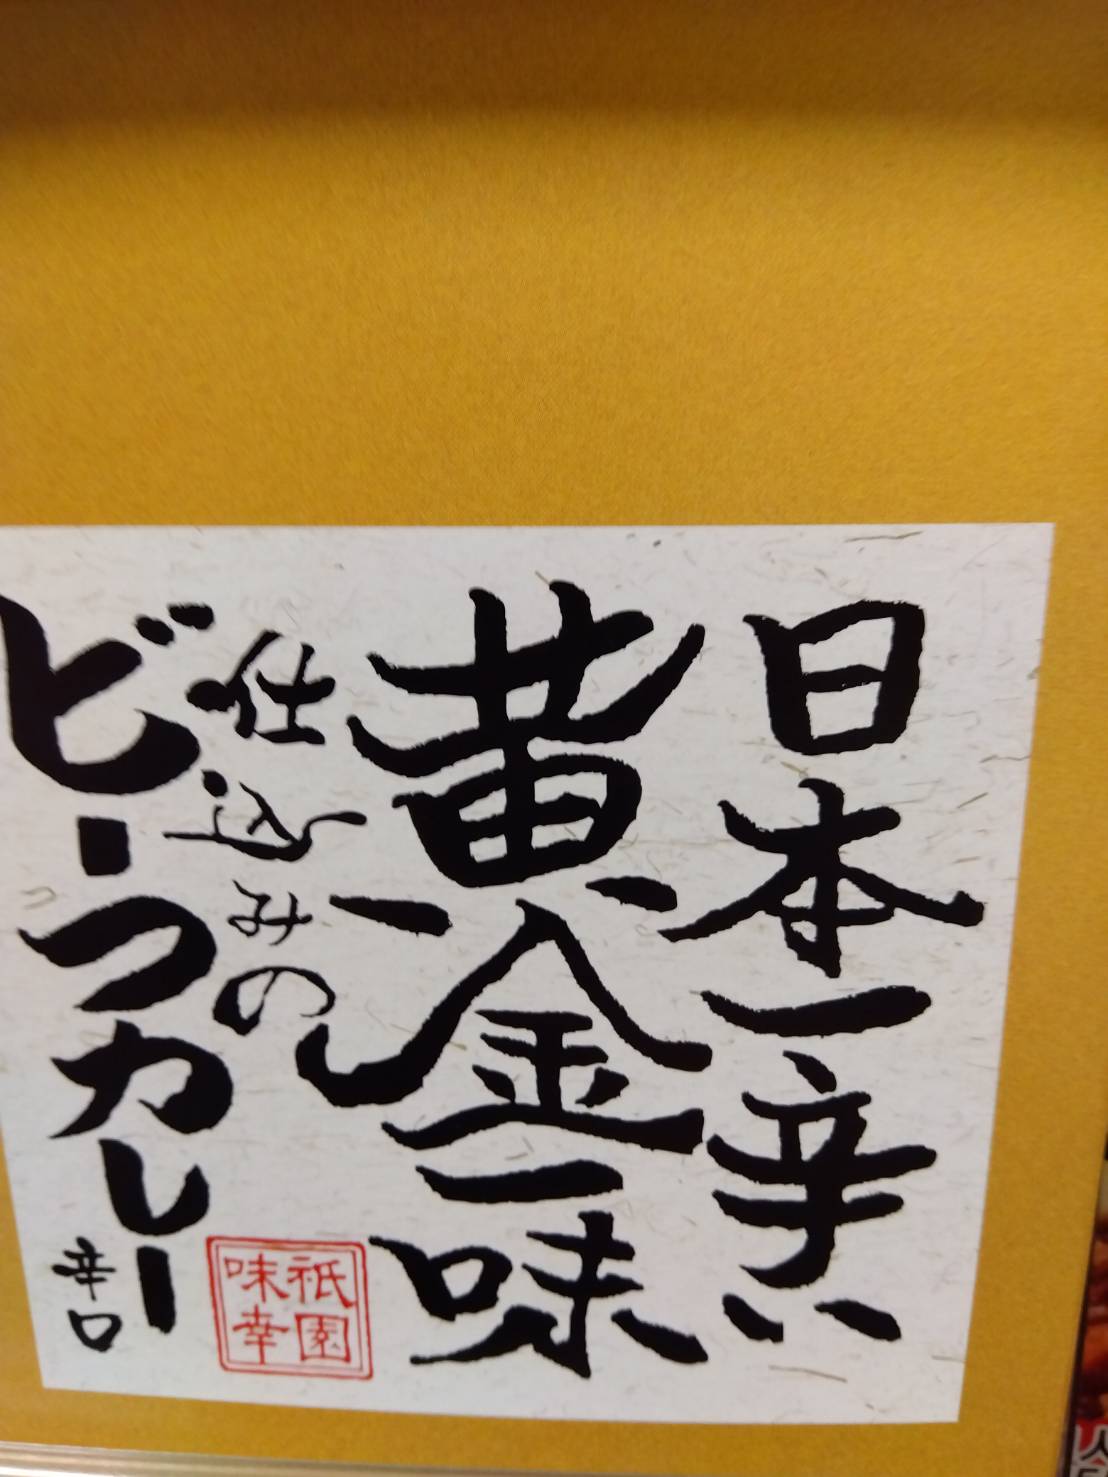 日本一辛い
黄金一味
仕込みの
ビーフカレー
辛口
祇園
味幸